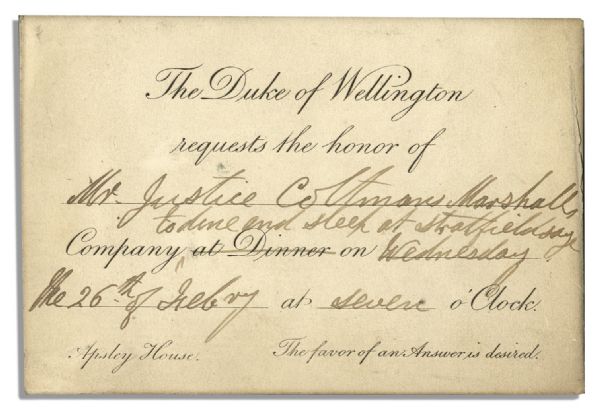 The Duke of Wellington
requests the honor of
Mr. Justice Coltmans Marshalls
to dine and sleep at Stratfieldsaye
Company at Dinner on Wednesday
the 26th of Feb ry at seven o'Clock.
Apsley House. The favor of an Answer is desired.